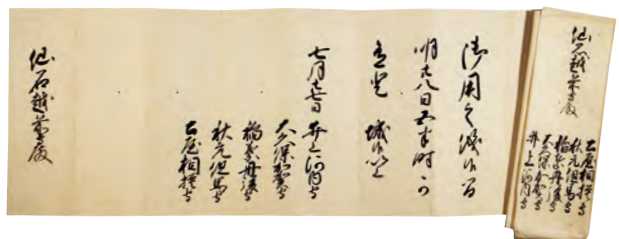 仙石越前守殿
土屋相模守
秋元但馬守
稲葉丹後守
大久保加賀守
井上河内守
御用之儀候間
明廿八日五半時可
有登 城候以上
七月廿七日 井上河内守
大久保加賀守
稲葉丹後守
秋元但馬守
土屋相模守
仙石越前守殿